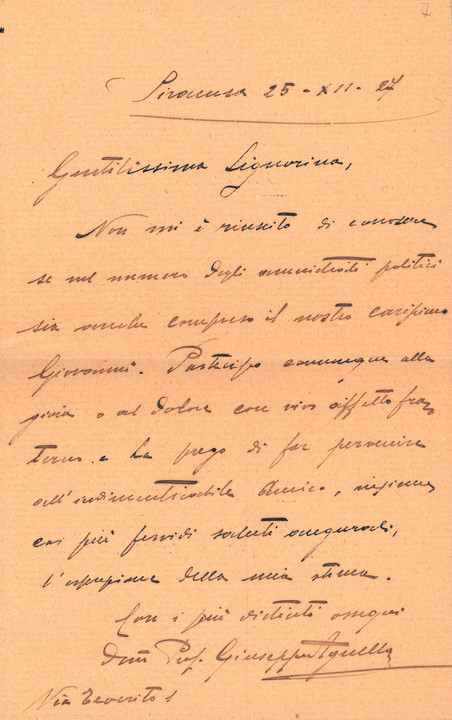 7
Siracusa 25-XII-27
Gentilissima Signorina,
Non mi è riuscito di conoscere
se nel numero degli amnistiati politici
sia anche compreso il nostro carissimo
Giovanni. Partecipo comunque alla
gioia o al dolore con vivo affetto fra
terno e La prego di far pervenire
all'indimenticabile Amico, insieme
coi più fervidi saluti augurali,
l'espressione della mia stima.
Con i più distinti ossequi
Prof. Giuseppe Agnello
Via